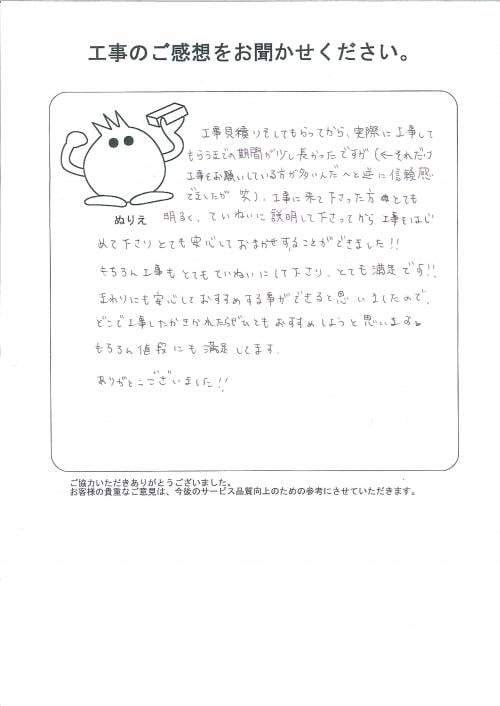 工事のご感想をお聞かせください。
工事見積りをしてもらってから、実際に工事して
もらうまでの期間が少し長かったですが(←それだけ
工事をお願いしている方が多いんだ〜と逆に信頼感
でましたが 笑)、工事に来て下さった方 とても
ぬりえ
明るく、ていねいに説明して下さってから 工事をはじ
めて下さりとても安心しておまかせすることができました!!
もちろん工事もとてもていねいにして下さり、とても満足です!!
まわりにも安心しておすすめする事ができると思いましたので、
どこで工事したかきかれたらぜひともおすすめしようと思います。
もちろん値段にも満足してます.
ありがとうございました!!
ご協力いただきありがとうございました。
お客様の貴重なご意見は、今後のサービス品質向上のための参考にさせていただきます。